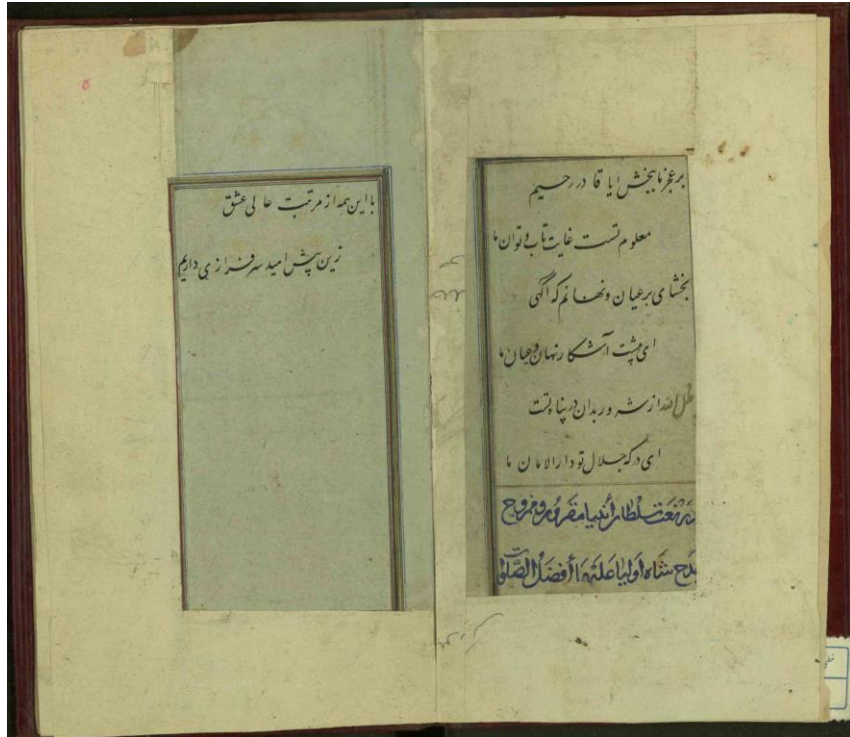 بر عجز ما ببخش ایا قادر رحیم
معلوم تست غایت تاب و توان ما
بخشای بر عیان و نهانم که آگهی
ای پیشت آشکار نهان و عیان ما
ظل الله از شرور بدان در پناه تست
ای درگه جلال تو دارالامان ما
در نعت سلطان أنبیا مقرون و ممزوج
بمدح شاه اولیا علیهما أفضل الصلوات
با این همه از مرتبت عالی عشق
زین پیش امید سرفرازی داریم